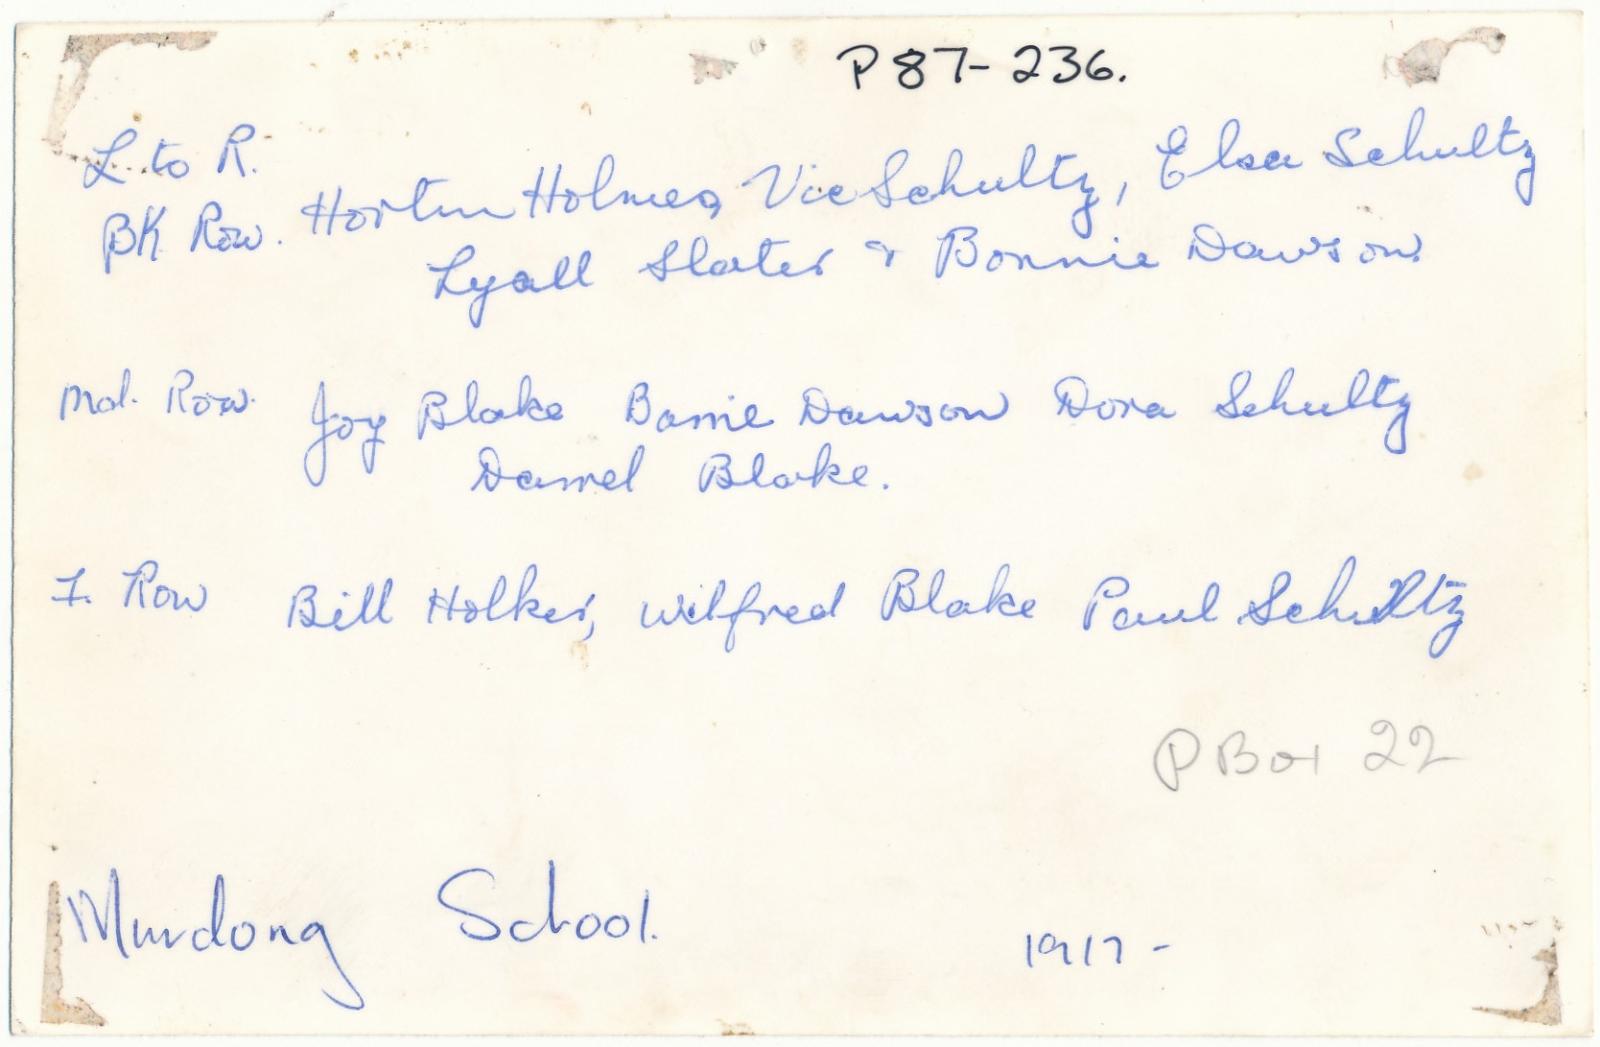 P87-236.
L to R.
BK Row. Horten Holmes, Vic Schultz, Elsa Schultz
Lyall Slater & Bonnie Dawson.
Mid. Row. Joy Blake Barrie Dawson Dora Schultz
Darrel Blake.
F. Row Bill Holker, Wilfred Blake Paul Schultz
P Box 22
Murdong School.
1917-